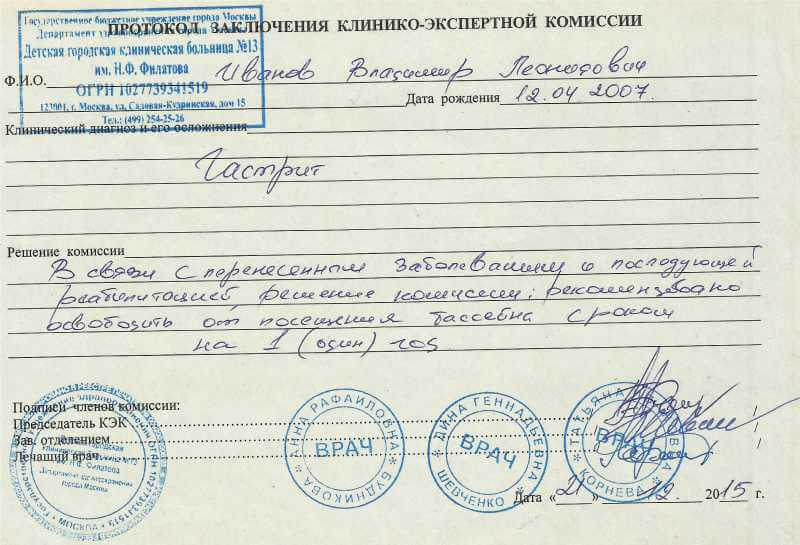 ПРОТОКОЛ ЗАКЛЮЧЕНИЯ КЛИНИКО-ЭКСПЕРТНОЙ КОМИССИИ
Государственное бюджетное учреждение города Москвы
Департамент здравоохранения города Москвы
Детская городская клиническая больница №13
им. Н.Ф. Филатова
ОГРН 1027739341519
123001, г. Москва, ул. Садовая-Кудринская, дом 15
Тел.: (499) 254-25-26
Ф.И.О. Иванов Владимир Леонидович
Дата рождения 12.04 2007.
Клинический диагноз и его осложнения
Гастрит
Решение комиссии
В связи с перенесенным заболеванием и последующей
реабилитацией, решение комиссии: рекомендовано
освободить от посещения бассейна сроком
на 1 (один) год
Подписи членов комиссии:
Председатель КЭК
Зав. отделением
Лечащий врач
АННА РАФАИЛОВНА
ВРАЧ
БУДНИКОВА
ДИНА ГЕННАДЬЕВНА
ВРАЧ
ШЕВЧЕНКО
ТАТЬЯНА
ВРАЧ
КОРНЕВА
ОГРН 1027739341519
им. Н.Ф. Филатова
Департамент здравоохранения
города Москвы
МОСКВА
Дата «21» 12. 2015 г.